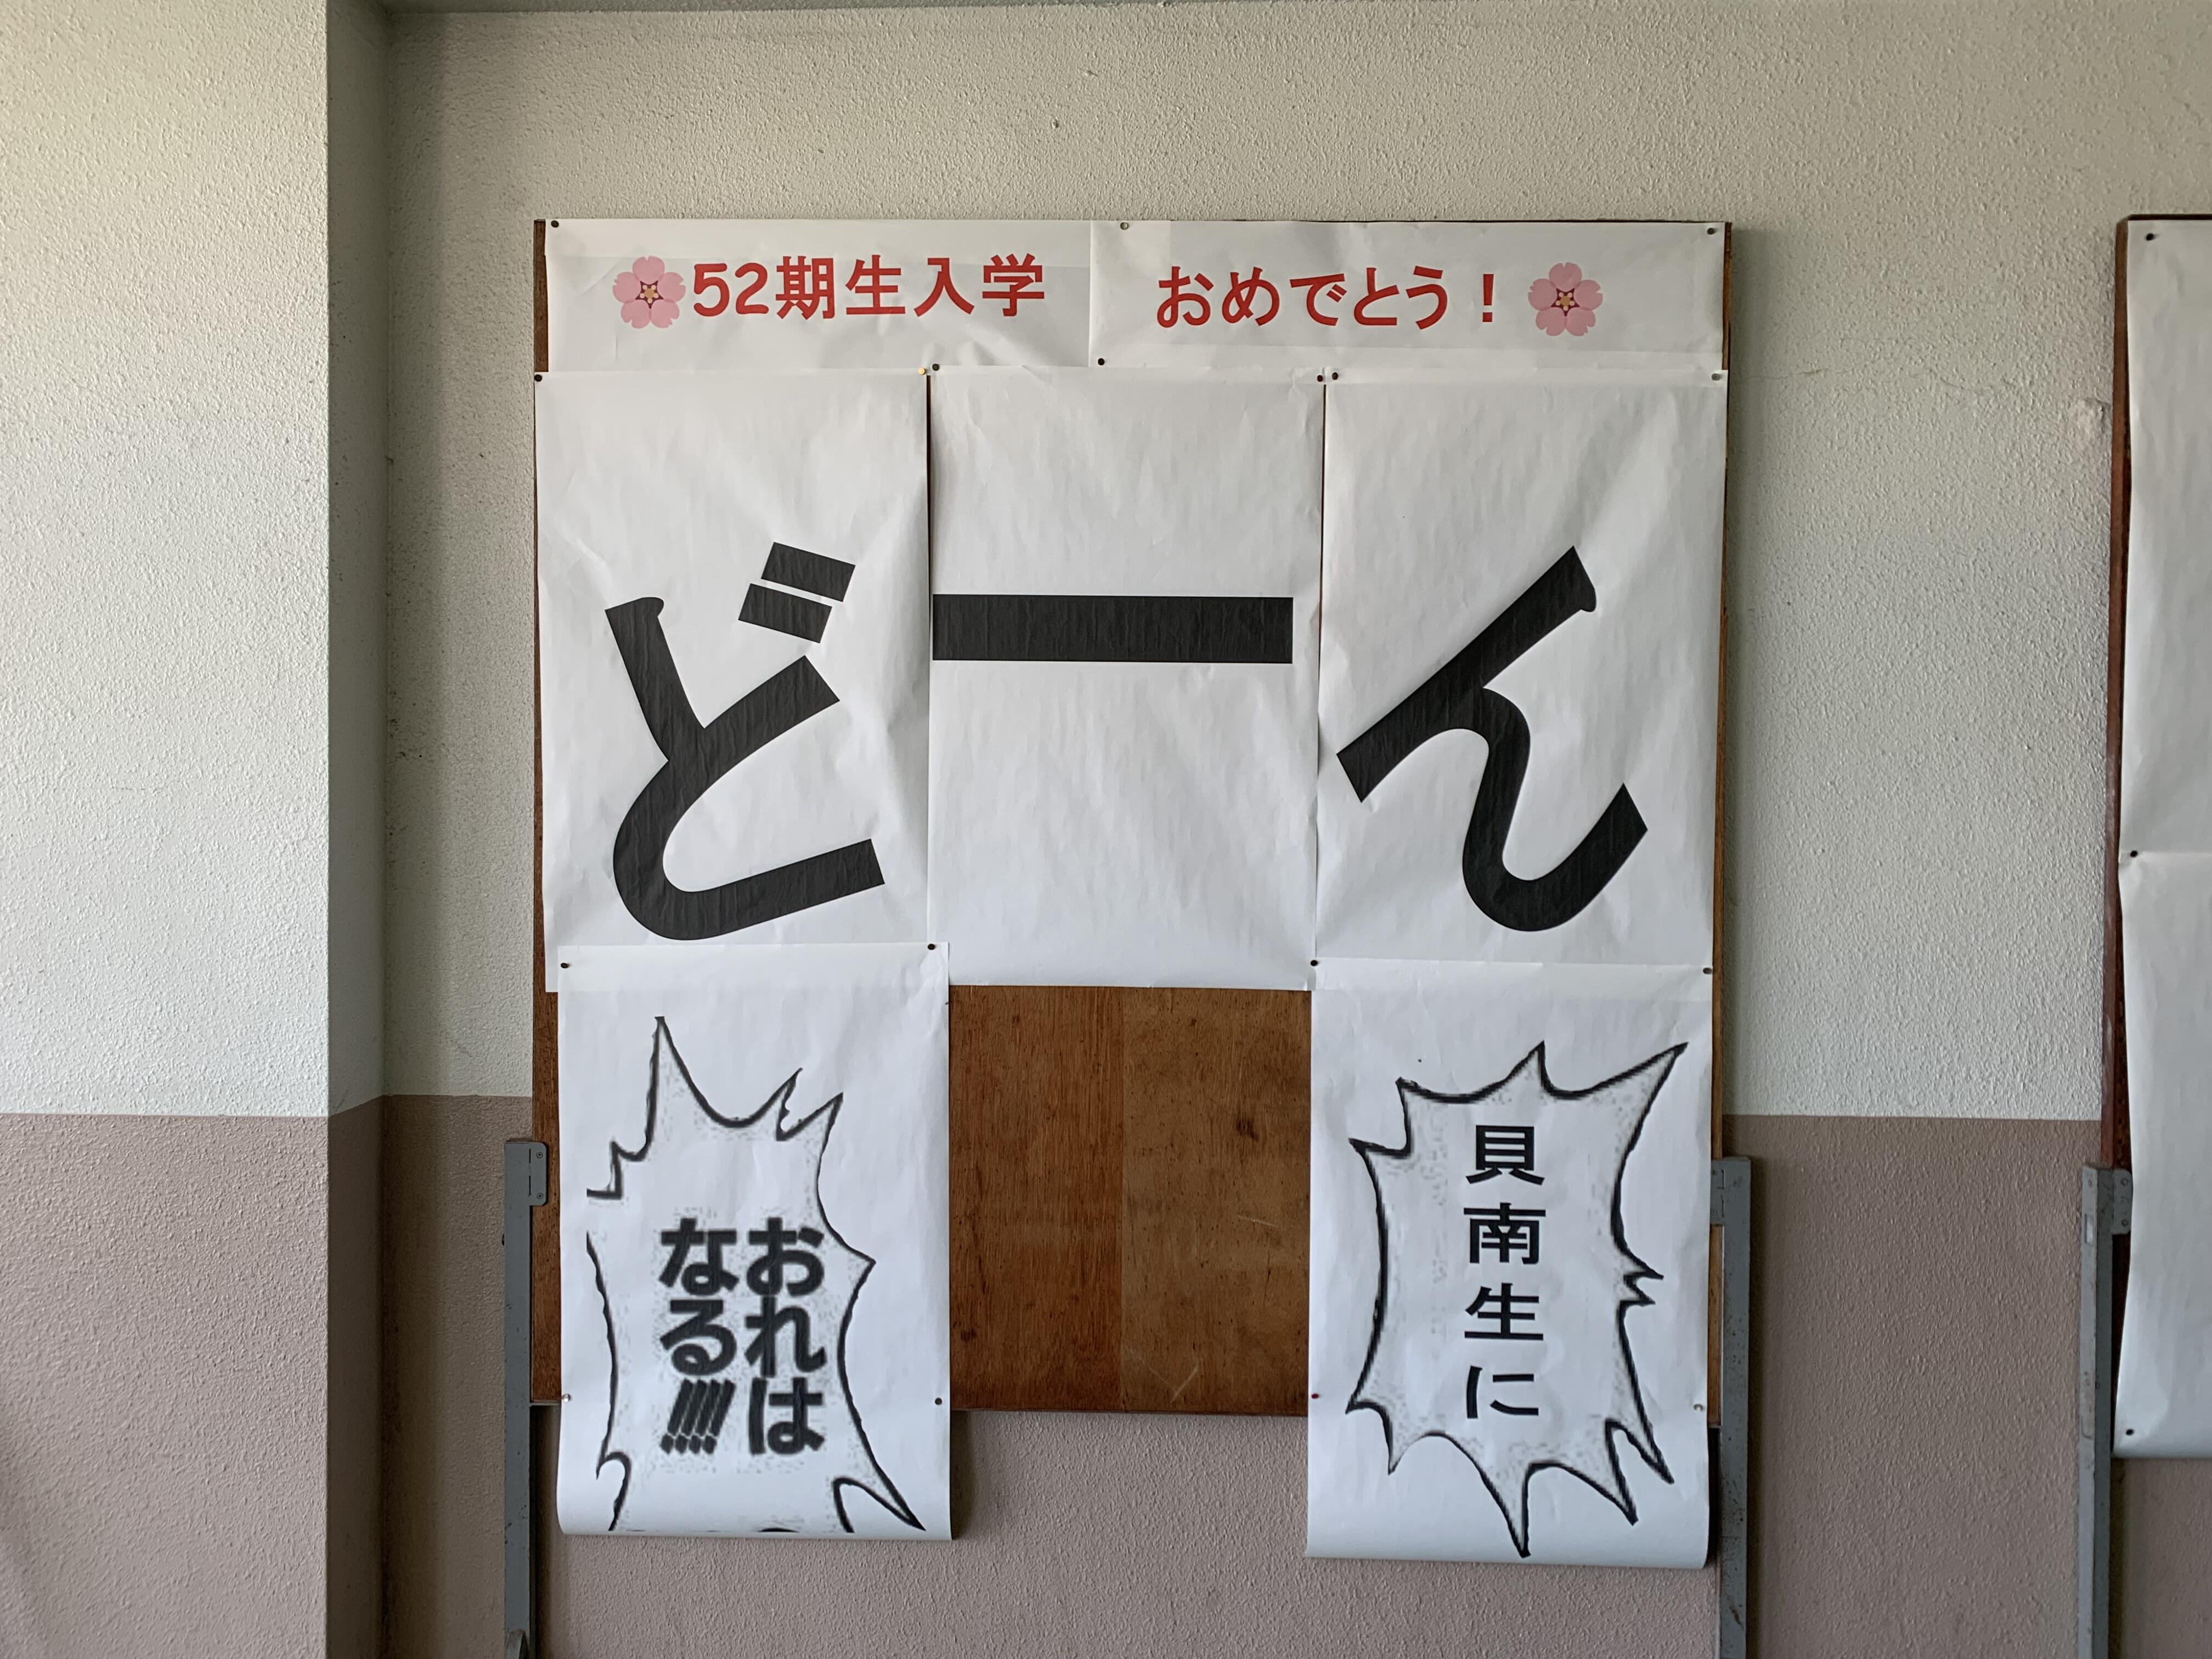 52期生入学 おめでとう！
どーん
貝南生に
おれは
なる!!!!